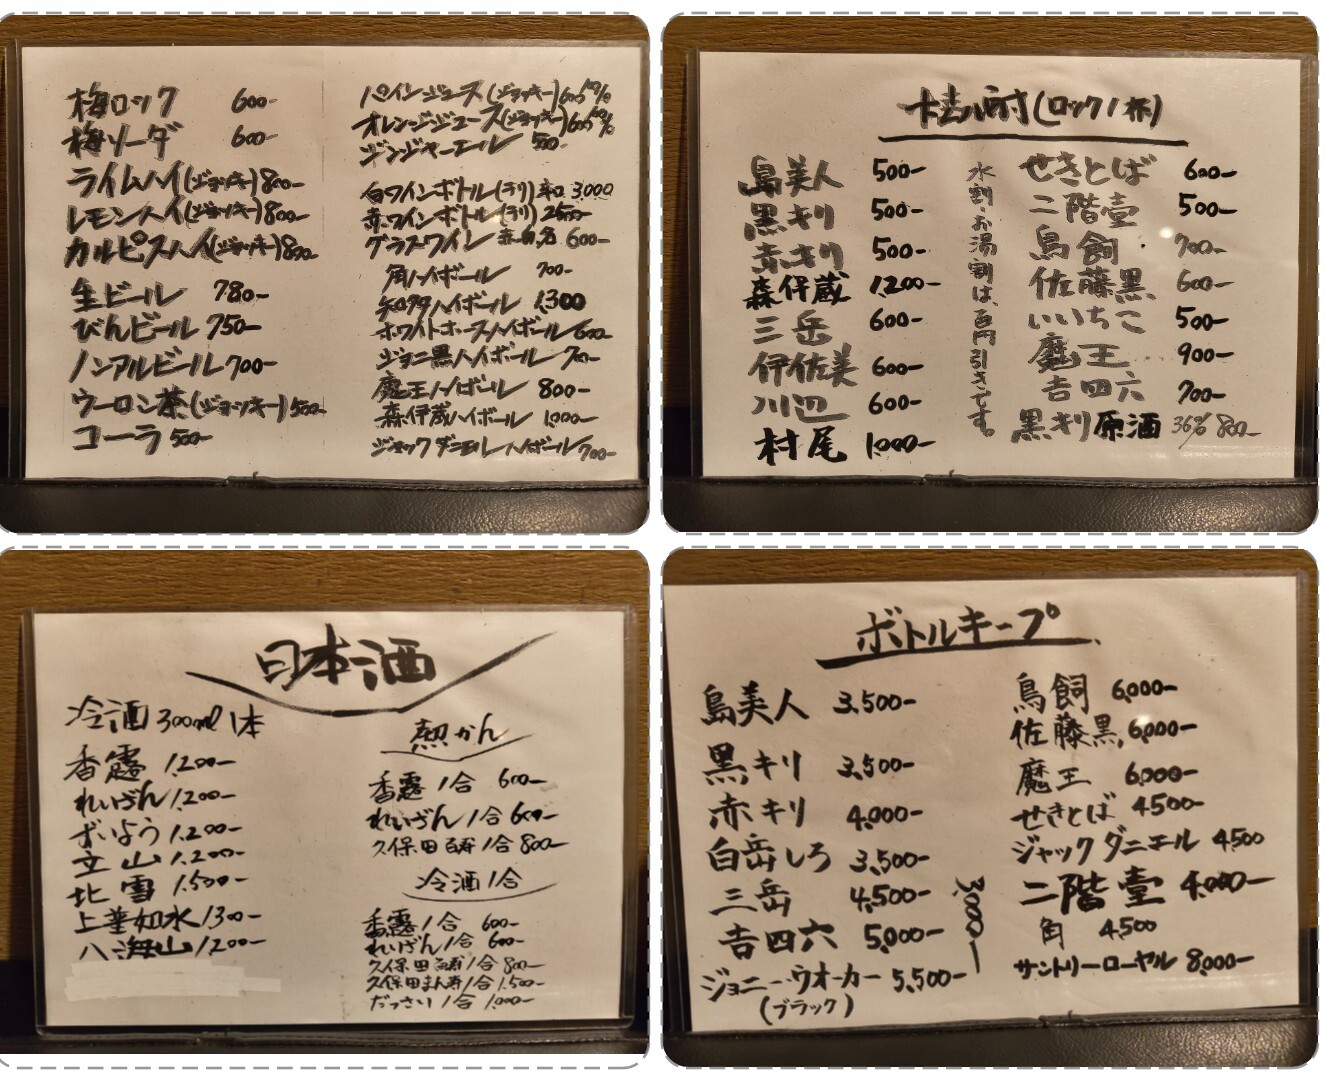 梅ロック 600-
梅ソーダ 600-
ライムハイ(ジョッキー) 800-
レモンハイ(ジョッキー) 800-
カルピスハイ(ジョッキー) 800-
生ビール 780-
びんビール 750-
ノンアルビール 700-
ウーロン茶(ジョッキー) 500-
コーラ 500-
パインジュース(ジョッキー) 600 100%
オレンジジュース(ジョッキー) 600 100%
ジンジャーエール 500-
白ワインボトル(チリ) 辛口 3,000
赤ワインボトル(チリ) 2500-
グラスワイン 赤・白 各 600-
角ハイボール 700-
知多ハイボール 1,300
ホワイトホースハイボール 600-
ジョニ黒ハイボール 700-
魔王ハイボール 800-
森伊蔵ハイボール 1,000-
ジャックダニエルハイボール 700-
焼酎(ロック1杯)
島美人 500-
黒キリ 500-
赤キリ 500-
森伊蔵 1,200-
三岳 600-
伊佐美 600-
川辺 600-
村尾 1,000-
水割・お湯割は、百円引きです。
せきとば 600-
二階堂 500-
鳥飼 700-
佐藤黒 600-
いいちこ 500-
魔王 900-
吉四六 700-
黒キリ原酒 36% 800-
日本酒
冷酒 300ml 1本
香露 1,200-
れいざん 1,200-
ずいよう 1,200-
立山 1,200-
北雪 1,500-
上善如水 1300-
八海山 1,200-
熱かん
香露 1合 600-
れいざん 1合 600-
久保田百寿 1合 800-
冷酒 1合
香露 1合 600-
れいざん 1合 600-
久保田百寿 1合 800-
久保田まん寿 1合 1,500-
だっさい 1合 1,000-
ボトルキープ
島美人 3,500-
黒キリ 3,500-
赤キリ 4,000-
白岳しろ 3,500-
三岳 4,500-
吉四六 5,000-
ジョニーウオーカー 5,500-
(ブラック)
3000-
鳥飼 6,000-
佐藤黒 6,000-
魔王 6,000-
せきとば 4500-
ジャックダニエル 4500
二階堂 4,000-
角 4,500
サントリーローヤル 8,000-